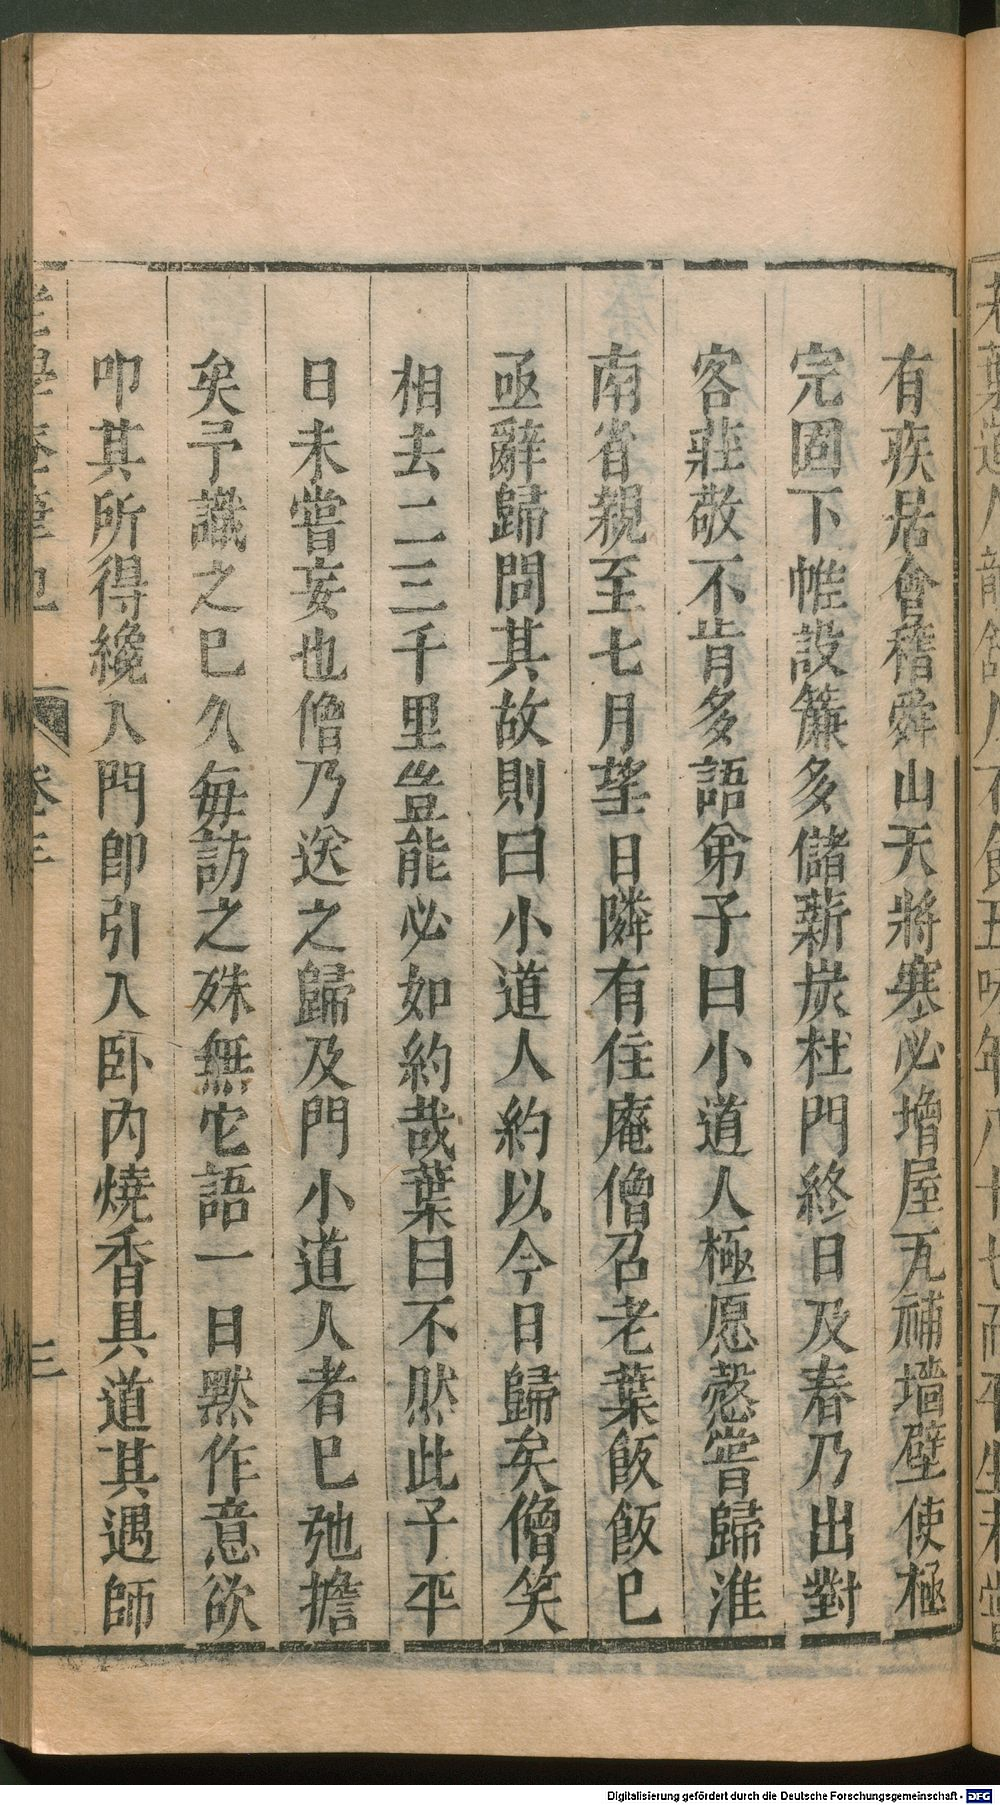 有疾居會稽舜山天將寒必增屋瓦補墻壁使極
完固下帷設簾多儲薪炭杜門終日及春乃出對
客莊敬不肯多語弟子曰小道人極愿愨嘗歸淮
南省親至七月望日隣有住庵僧召老葉飯飯已
亟辭歸問其故則曰小道人約以今日歸矣僧笑
相去二三千里豈能必如約哉葉曰不然此子平
日未嘗妄也僧乃送之歸及門小道人者已弛擔
矣予識之已久每訪之殊無它語一日默作意欲
叩其所得纔入門即引入卧內燒香具道其遇師
卷三
三
Digitalisierung gefördert durch die Deutsche Forschungsgemeinschaft - DFG